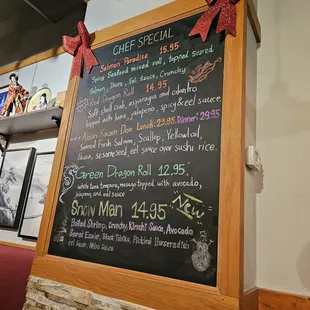 CHEF SPECIAL
Salmon Paradise 15.95
Spicy Seafood mixed roll, topped
with tuna, Eel sauce, Crunchy
Red Dragon Roll 14.95
Soft shell crab, asparagus and cilantro
with tuna, jalapeno, spicy & eel sauce
Don Lunch: 23.95 Dinner: 29.95
Seared Fresh Salmon, Scallop, Yellowtail,
sesame seed eel sauce over sushi rice.
Green Dragon Roll 12.95
white tuna tempura, masago topped with avocado,
jalapeno and eel sauce
Snow Man 14.95 New
Boiled Shrimp, Crunchy, Kimchi Sauce, Avocado
Seared Black Tobiko, Pickled
Sauce